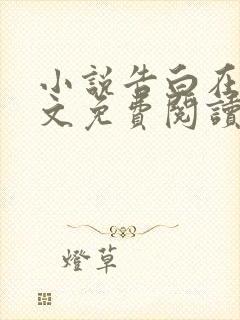 小說告白在
文免費閱讀
燈草